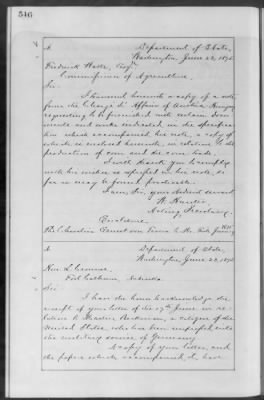 546
A
Department of State,
Washington, June 22, 1875
Frederick Watts, Esqr.
Commissioner of Agriculture.
Sir:
I transmit herewith a copy of a note
from the Chargé d'Affaires of Austria Hungary
requesting to be furnished with certain docu
ments and seeds indicated, in the specifica
tion which accompanied his note, a copy of
which is enclosed herewith, in relation to the
production of corn and the corn trade.
I will thank you to comply
with his wishes as specified in his note, so
far as may be found practicable.
I am, Sir, your obedient servant
W. Hunter
Acting Secretary.
Enclosure
A
Department of State,
Washington, June 22, 1875
Hon. L. Crounse,
Fort Calhoun, Nebraska
Sir:
I have the honor to acknowledge the
receipt of your letter of the 17th June, in re
lation to Beckman, a citizen of the
United States, who has been impressed into
the military service of Germany.
A copy of your letter, and
the papers which accompanied it, have